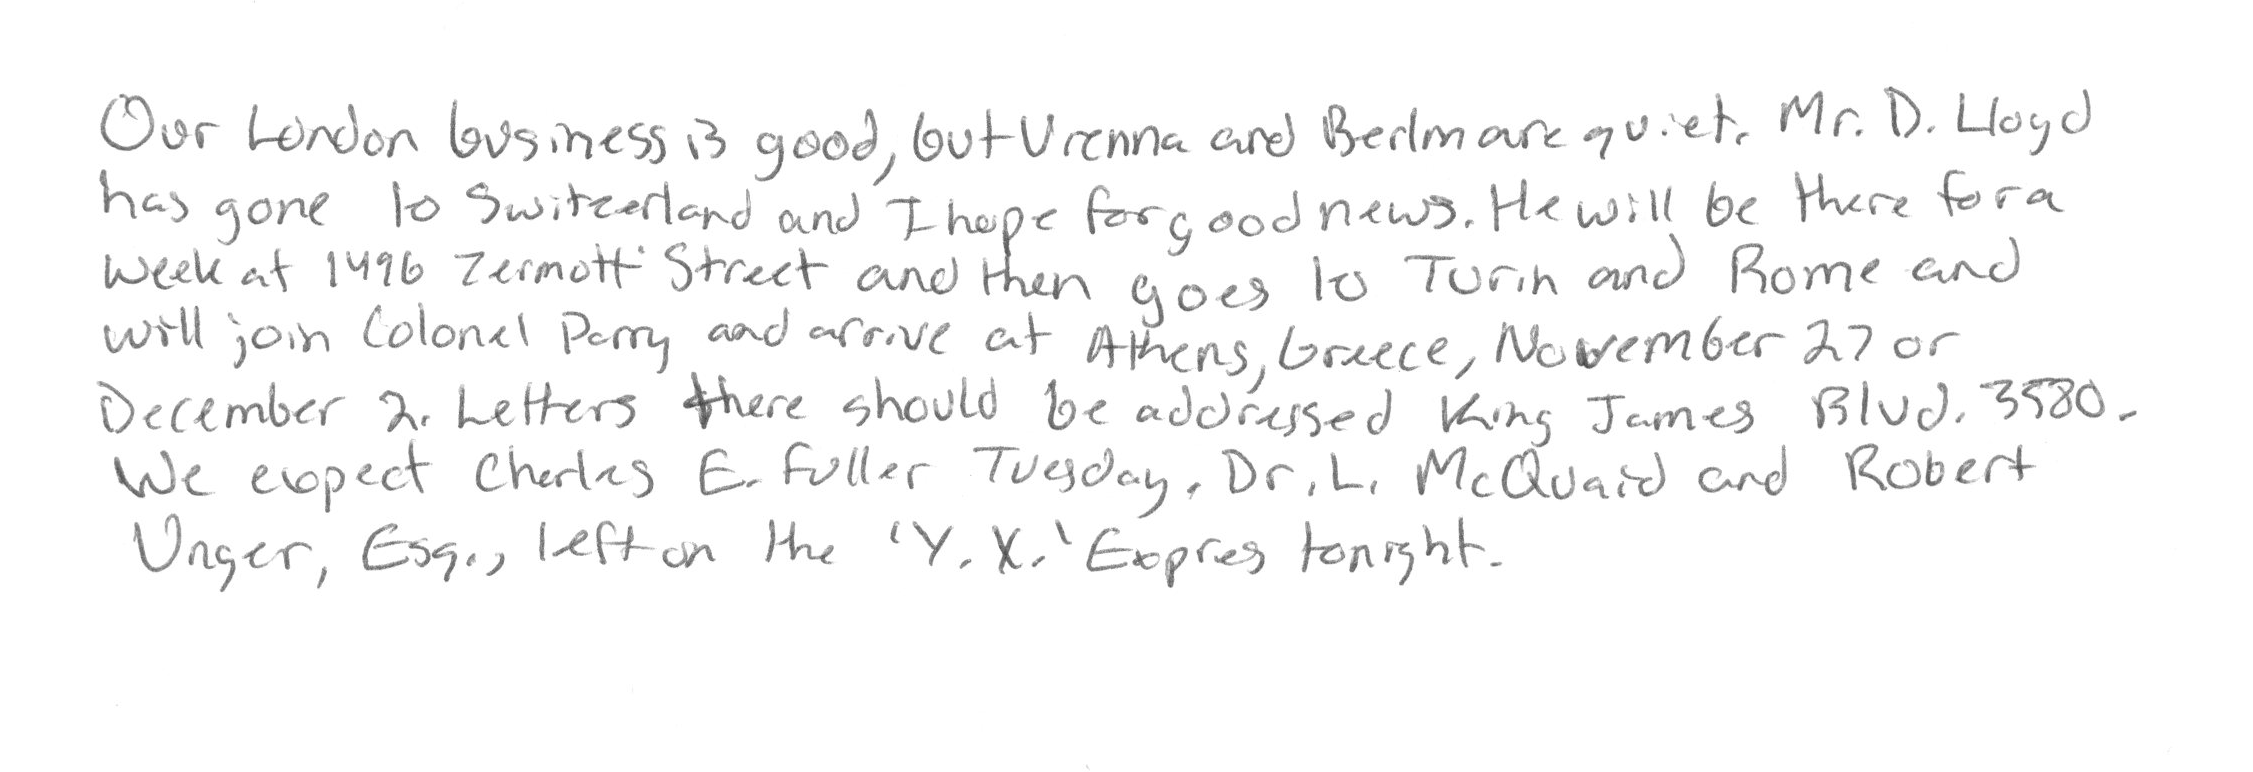 Our London business is good, but Vienna and Berlin are quiet. Mr. D. Lloyd
has gone to Switzerland and I hope for good news. He will be there for a
week at 1496 Zermott Street and then goes to Turin and Rome and
will join Colonel Parry and arrive at Athens, Greece, November 27 or
December 2. Letters there should be addressed King James Blvd. 3580.
We expect Charles E. Fuller Tuesday. Dr. L. McQuaid and Robert
Unger, Esq., left on the 'Y. X.' Expres tonight.